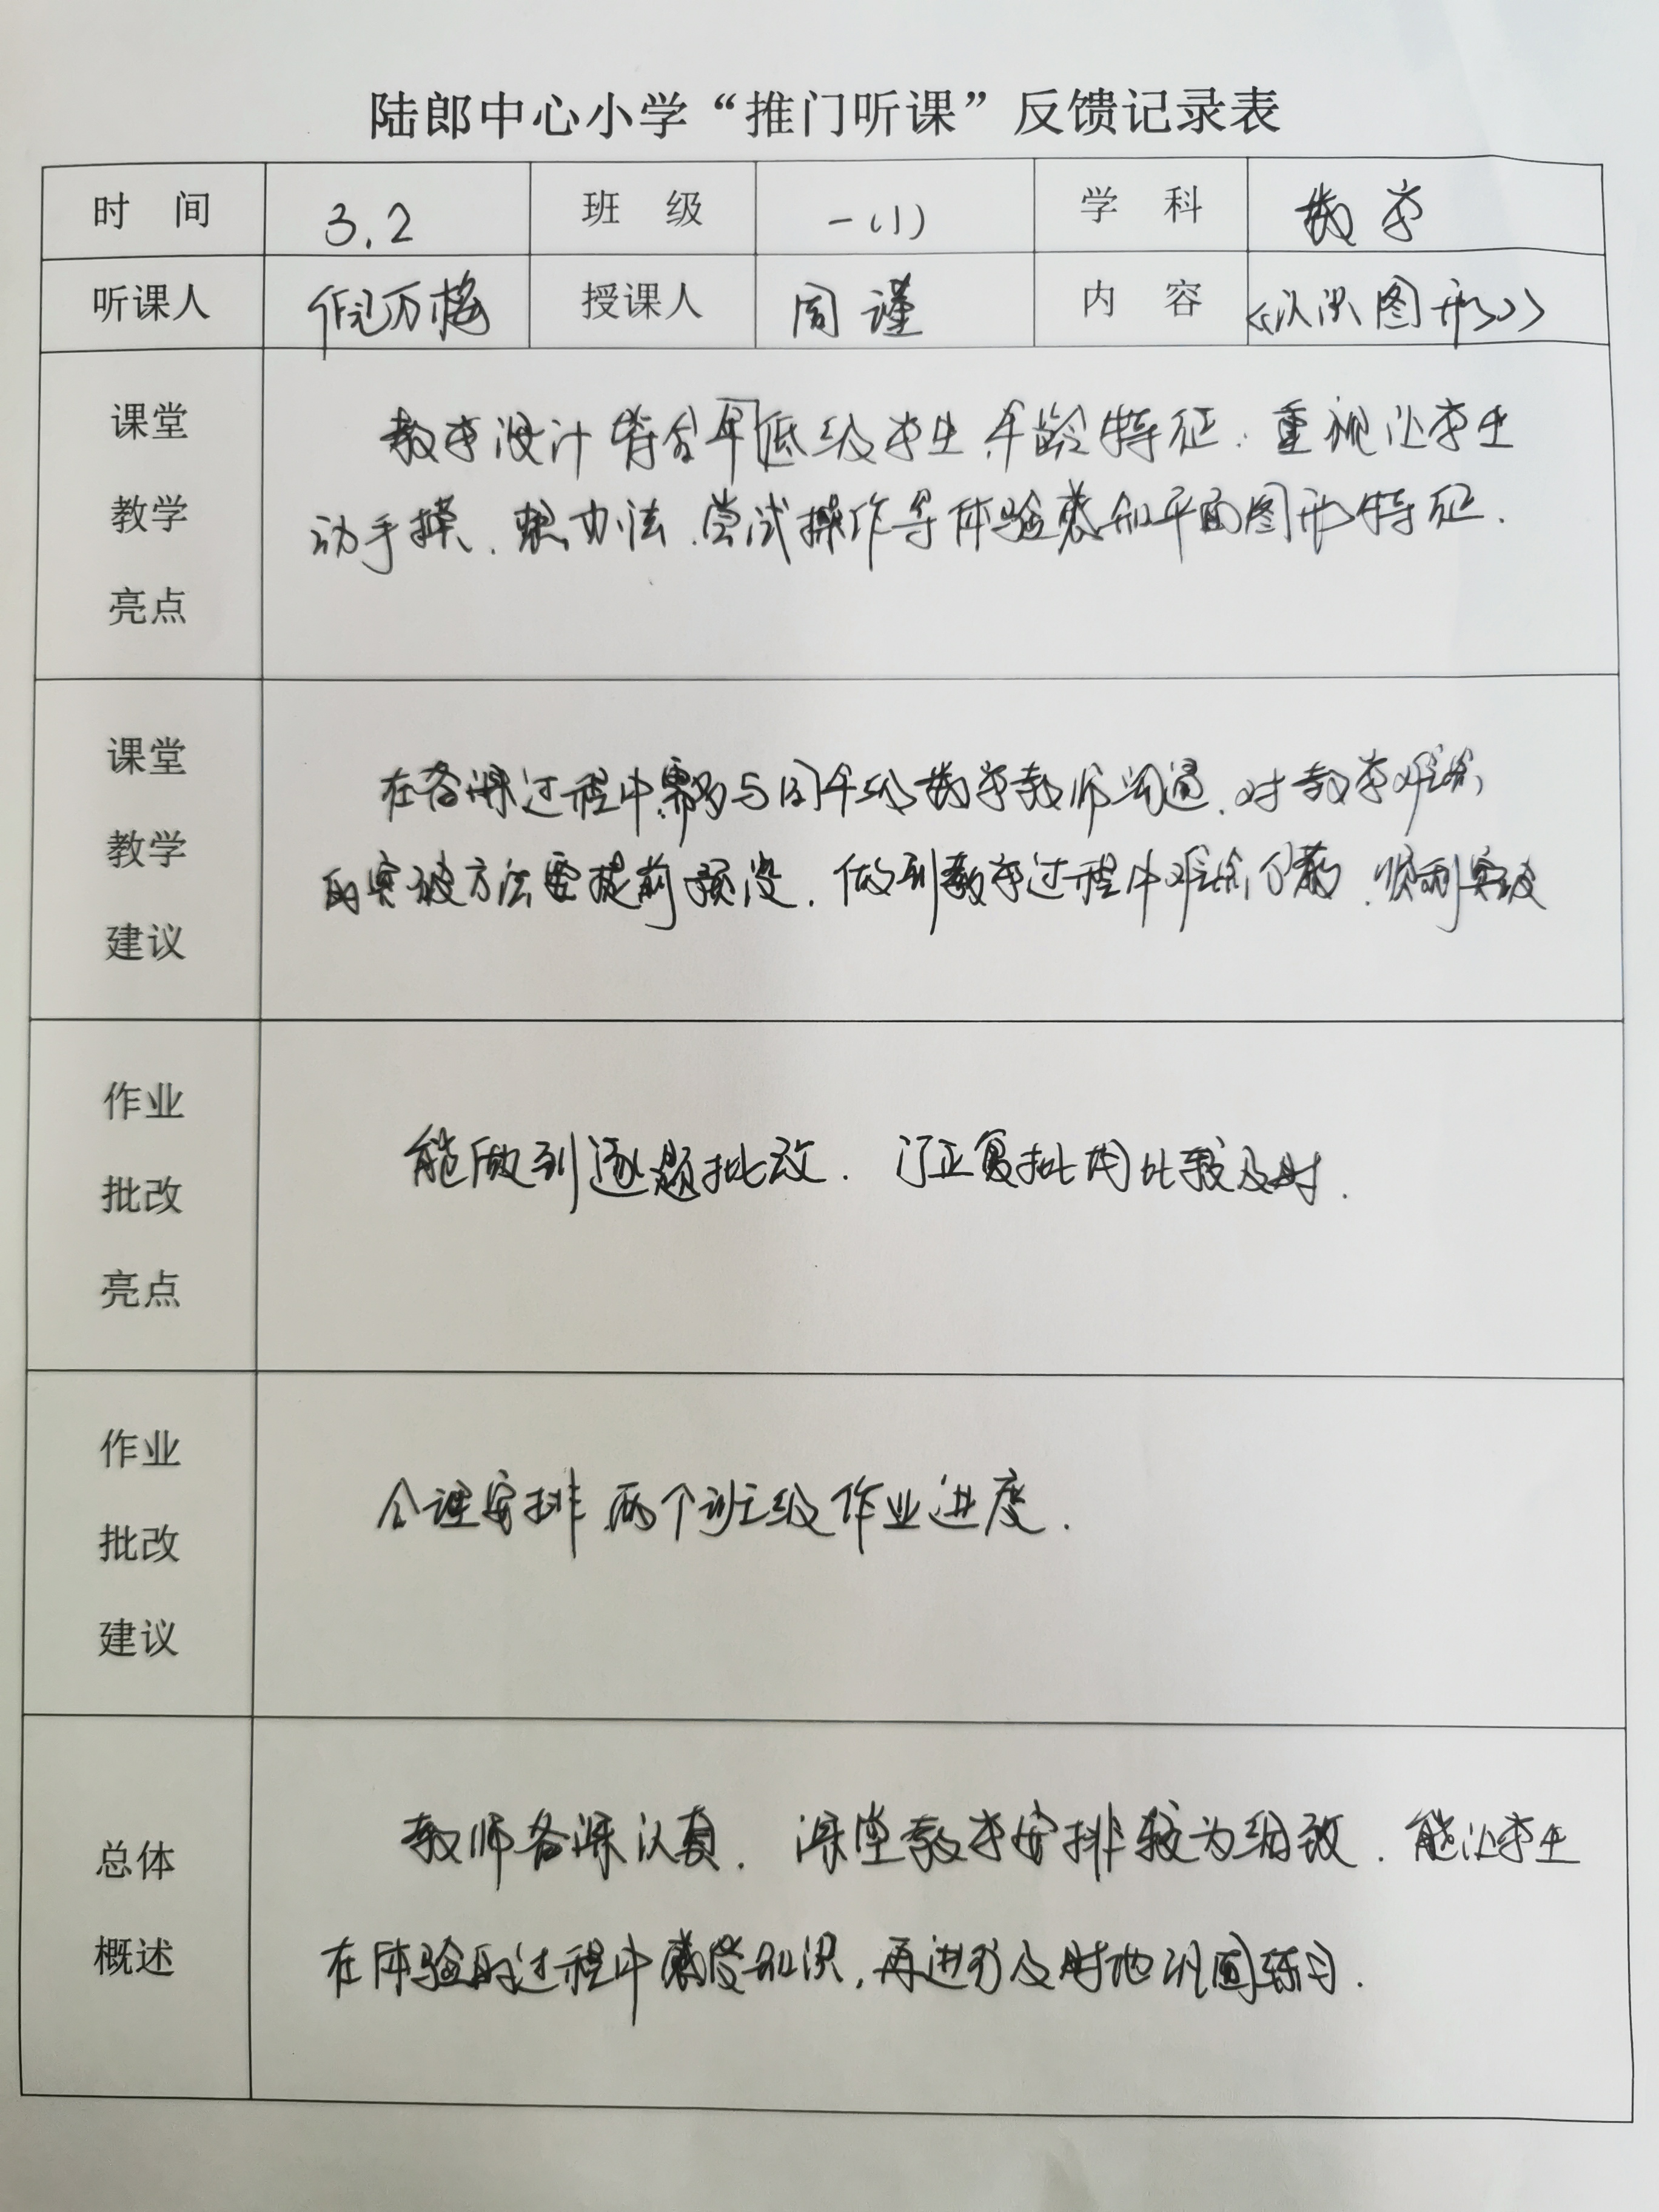 陆郎中心小学“推门听课”反馈记录表
时 间 3.2 班 级 一(1) 学 科 数学
听课人 倪万梅 授课人 周谨 内 容 《认识图形》
课堂
教学
亮点
教学设计符合年低级学生年龄特征.重视让学生
动手摸、想办法、尝试操作等体验感知平面图形特征.
课堂
教学
建议
在备课过程中需多与同年级数学教师沟通.对教学难点
的突破方法要提前预设.做到教学过程中难点分散.顺利突破
作业
批改
亮点
能做到逐题批改.订正复批均比较及时.
作业
批改
建议
合理安排两个班级作业进度.
总体
概述
教师备课认真.课堂教学安排较为细致.能让学生
在体验的过程中感受知识,再进行及时地巩固练习.